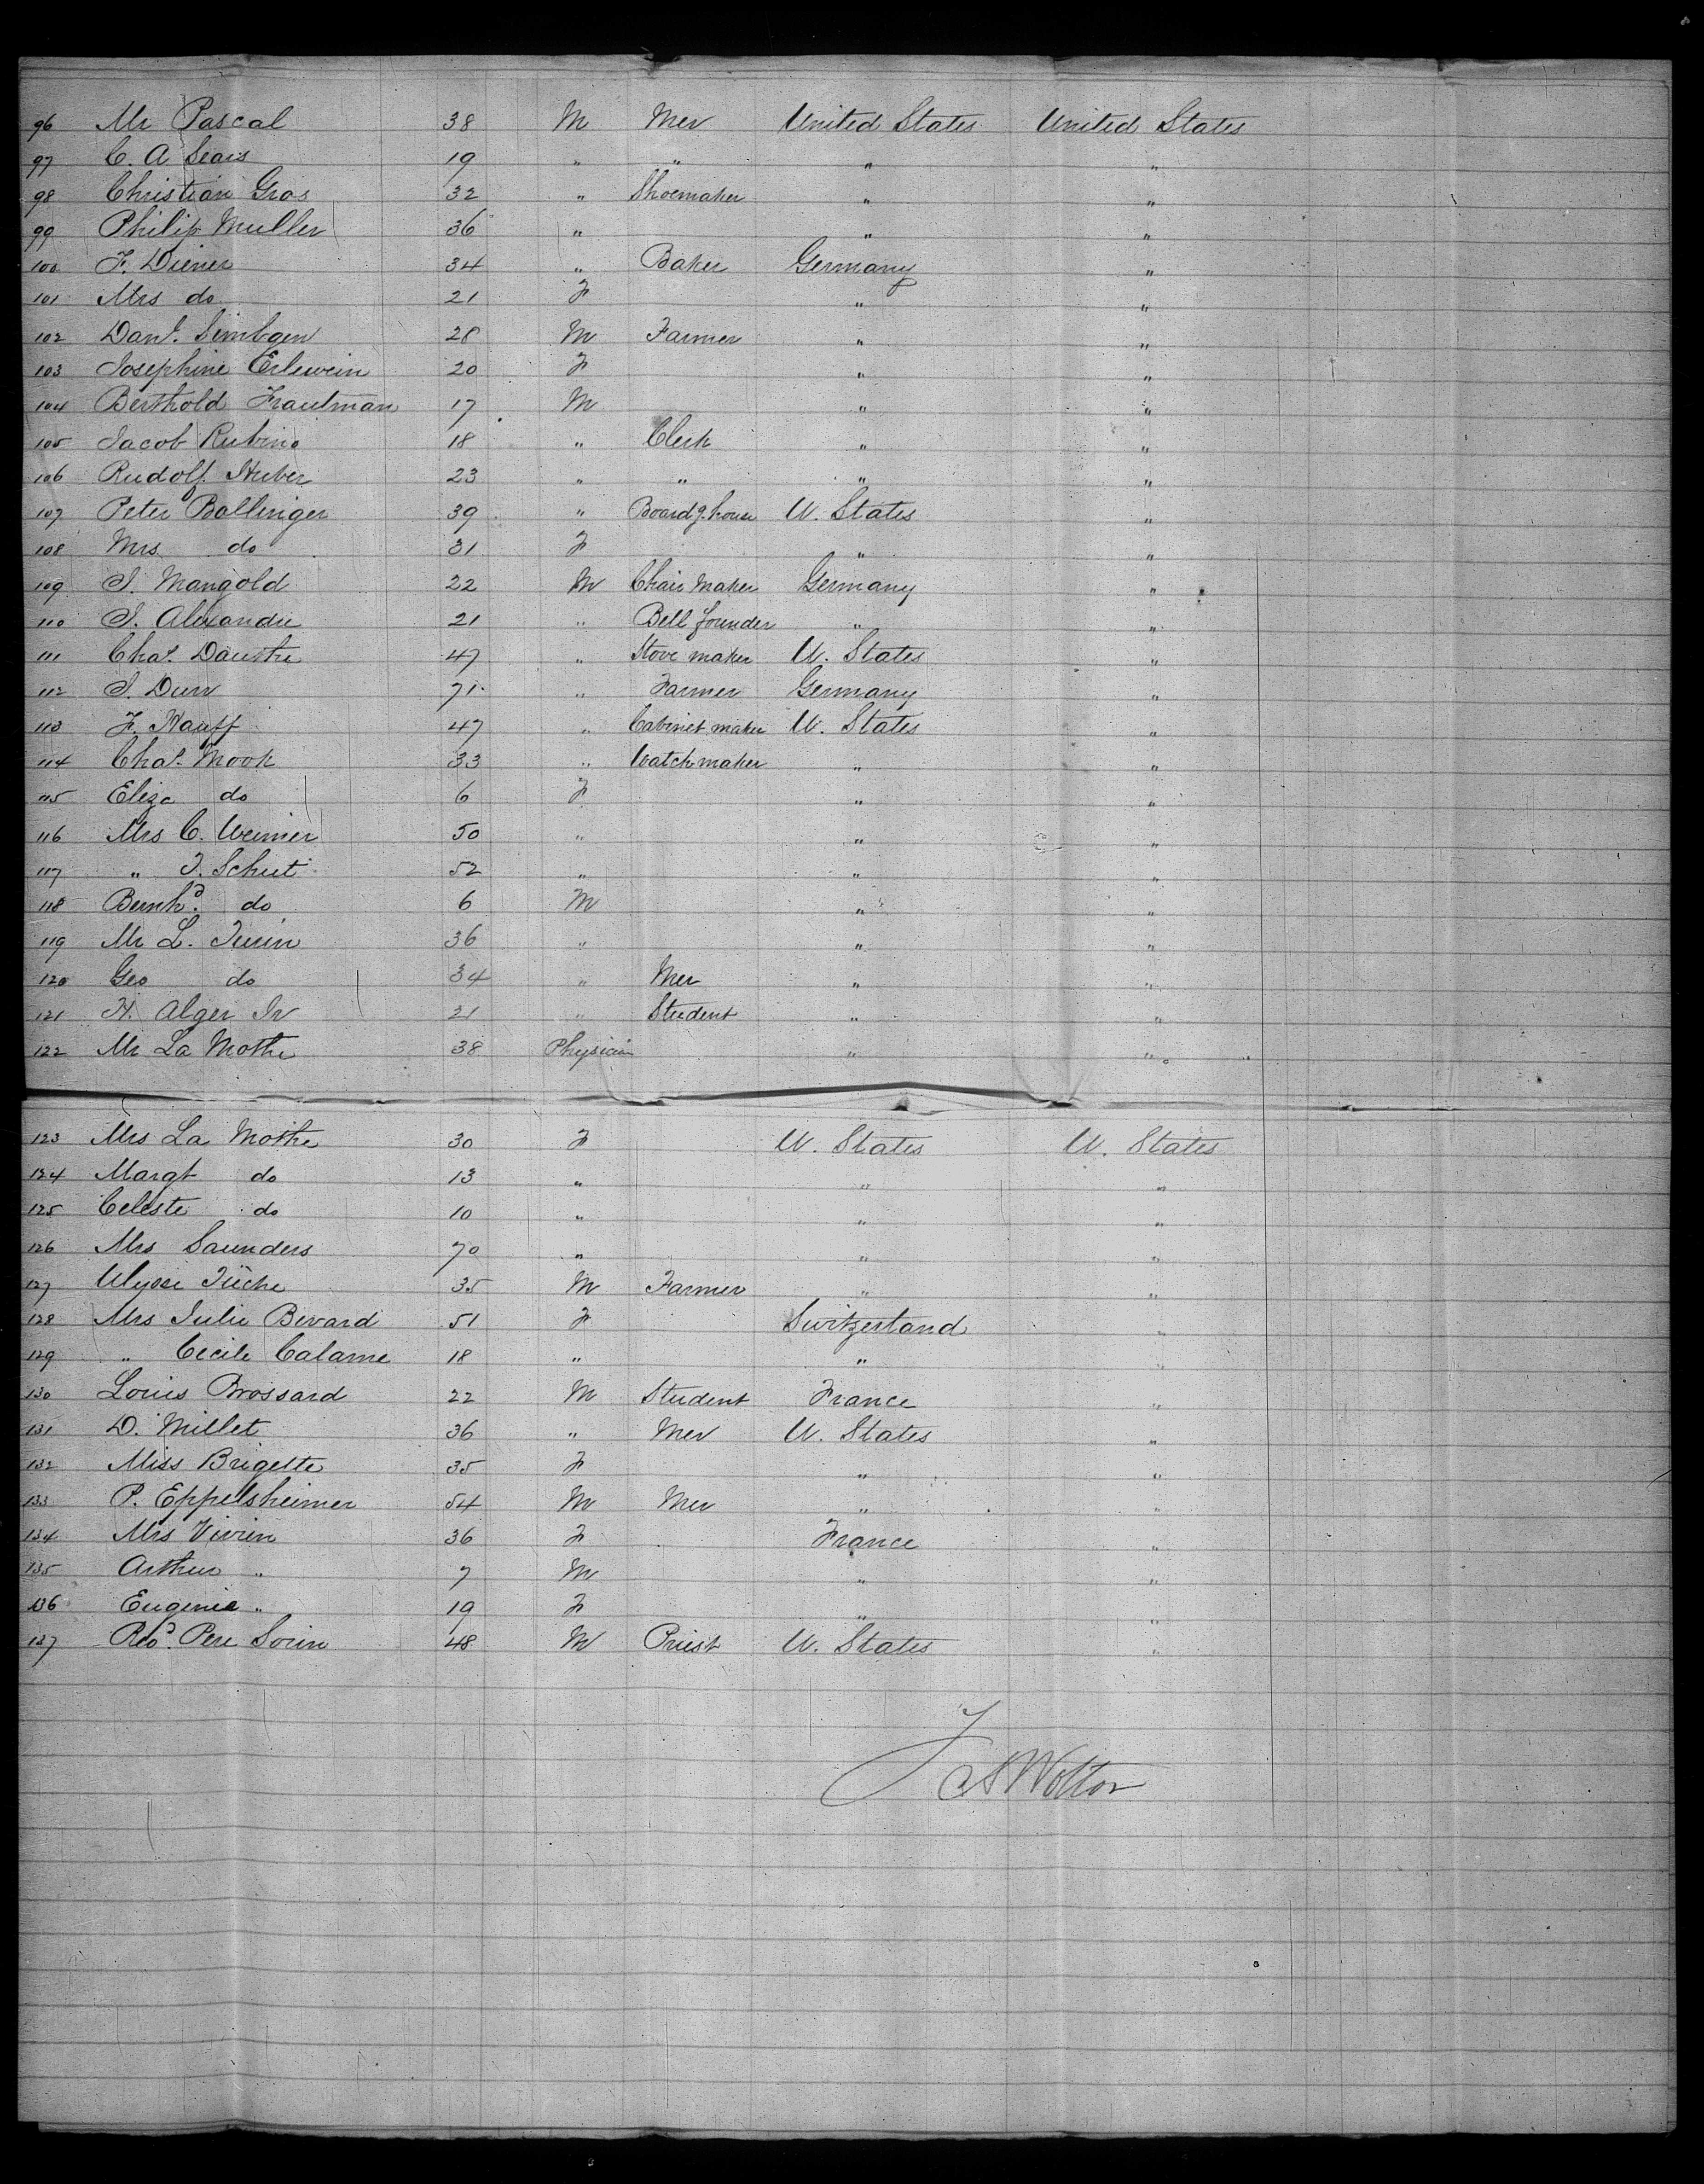 96 Mr Pascal 38 M Mer United States United States
97 C. A Sears 19 " " " "
98 Christian Gros 32 " Shoemaker " "
99 Philip Muller 36 " " "
100 F. Diener 34 " Baker Germany "
101 Mrs do 21 F " "
102 Danl. 28 M Farmer " "
103 Josephine Erlewein 20 F " "
104 Berthold Frautman 17 M " "
105 Jacob Rubino 18 " Clerk " "
106 Rudolf Huber 23 " " " "
107 Peter Bollinger 39 " Boardg. house U. States "
108 Mrs do 31 F " "
109 J. Mangold 22 M Chair Maker Germany "
110 J. Alexandre 21 " Bell founder " "
111 Chas. 47 " Stove maker U. States "
112 J. Durr 71 " Farmer Germany "
113 F. Hauff 47 " Cabinet maker U. States "
114 Chas. Mook 33 " Watchmaker " "
115 Eliza do 6 F " "
116 Mrs C. Weimer 50 " " "
117 " 52 " " "
118 Bernhd. do 6 M " "
119 Mr L. 36 " " "
120 Geo do 34 " Mer " "
121 H. Alger Jr 21 " Student " "
122 Mr La Mothe 38 Physician " "
123 Mrs La Mothe 30 F U. States U. States
124 Margt do 13 " " "
125 Celeste do 10 " " "
126 Mrs Saunders 70 " " "
127 Ulysse 35 M Farmer " "
128 Mrs Julie Bevard 51 F Switzerland "
129 " Cecile Calame 18 " " "
130 Louis Brossard 22 M Student France "
131 D. Millet 36 " Mer U. States "
132 Miss Brigette 35 F " "
133 P. Eppelsheimer 54 M Mer " "
134 Mrs Vivien 36 F France "
135 Arthur " 7 M " "
136 Eugenie " 19 F " "
137 Revd. Pere Sorin 48 M Priest U. States "